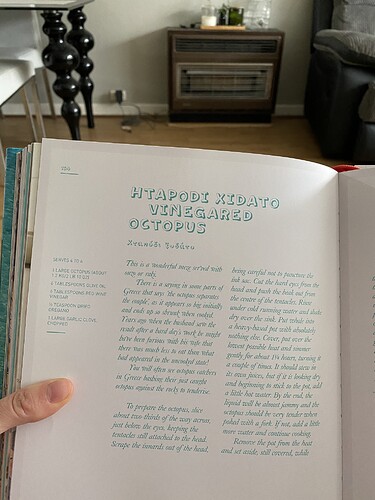 HTAPODI XIDATO
VINEGARED
OCTOPUS
Χταπόδι ξυδάτο
SERVES 4 TO 6
1 LARGE OCTOPUS, ABOUT
4 TABLESPOONS OLIVE OIL
4 TABLESPOONS RED WINE
VINEGAR
½ TEASPOON DRIED
OREGANO
1 LARGE GARLIC CLOVE,
CHOPPED
This is a wonderful meze served with
ouzo or raki.
There is a saying in some parts of
Greece that says 'the octopus separates
the couple', as it appears so big initially
and ends up so shrunk when cooked.
Years ago when the husband saw the
result after a hard day's work, he might
have been furious with his wife that
there was much less to eat than what
had appeared in the uncooked state!
You will often see octopus catchers
in Greece bashing their just caught
octopus against the rocks to tenderise.
To prepare the octopus, slice
about two-thirds of the way across,
just below the eyes, keeping the
tentacles still attached to the head.
Scrape the innards out of the head,
being careful not to puncture the
ink sac. Cut the hard eyes from the
head and push the beak out from
the centre of the tentacles. Rinse
under cold running water and shake
dry over the sink. Put whole into
a heavy-based pot with absolutely
nothing else. Cover, put over the
lowest possible heat and simmer
gently for about 1½ hours, turning it
a couple of times. It should stew in
its own juices, but if it is looking dry
and beginning to stick to the pot, add
a little hot water. By the end, the
liquid will be almost jammy and the
octopus should be very tender when
poked with a fork. If not, add a little
more water and continue cooking.
Remove the pot from the heat
and set aside, still covered, while